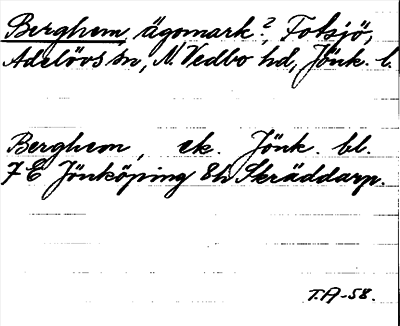 Berghem, ägomark?, Fotsjö,
Adelövs sn, N. Vedbo hd, Jönk. l.
Berghem, ek. Jönk. bl.
7 E Jönköping 8h Skräddarp.
T.A-58.